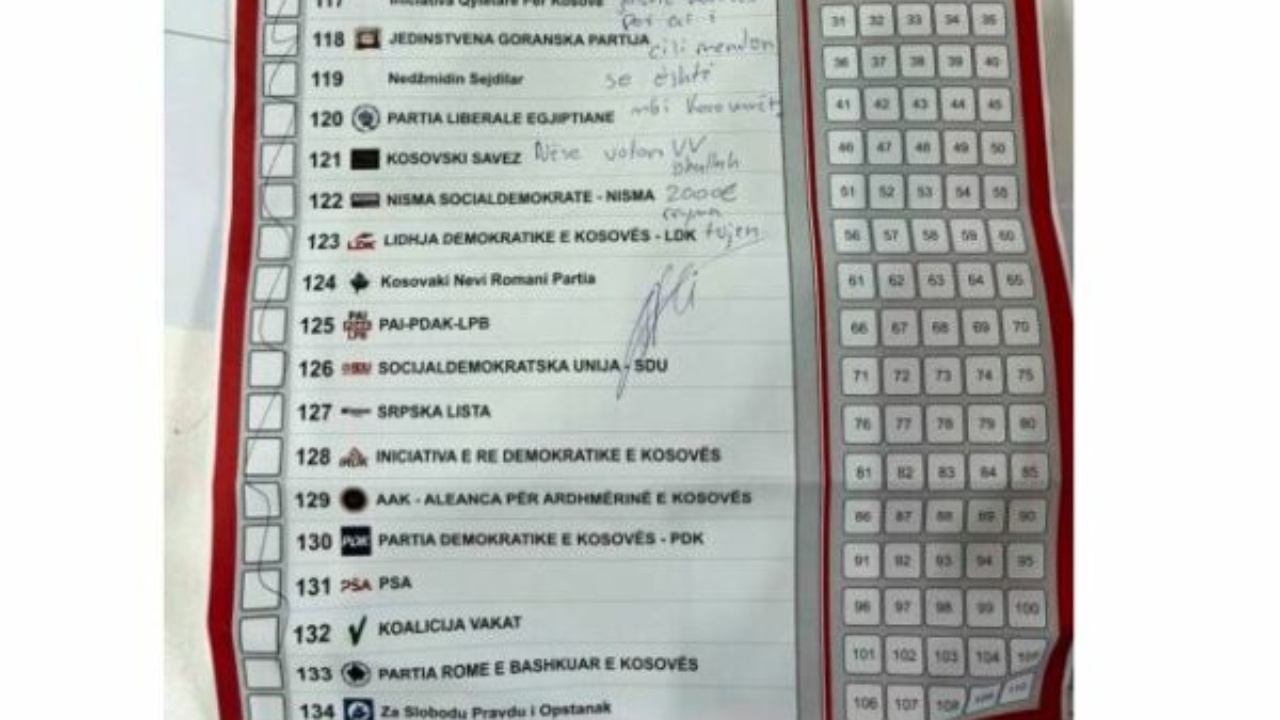 117 Iniciativa Qytetare Për Kosovë
118 JEDINSTVENA GORANSKA PARTIJA cili mendon
119 Nedžmidin Sejdilar se është
120 PARTIA LIBERALE EGJIPTIANE mbi
121 KOSOVSKI SAVEZ Nëse voton VV
122 NISMA SOCIALDEMOKRATE - NISMA 2000€
123 LDK LIDHJA DEMOKRATIKE E KOSOVËS - LDK
124 Kosovaki Nevi Romani Partia
125 PAI PDAK LPB PAI-PDAK-LPB
126 SDU SOCIJALDEMOKRATSKA UNIJA - SDU
127 SRPSKA LISTA
128 INICIATIVA E RE DEMOKRATIKE E KOSOVËS
129 AAK - ALEANCA PËR ARDHMËRINË E KOSOVËS
130 PDK PARTIA DEMOKRATIKE E KOSOVËS - PDK
131 PSA PSA
132 KOALICIJA VAKAT
133 PARTIA ROME E BASHKUAR E KOSOVËS
134 Za Slobodu Pravdu i Opstanak
31 32 33 34 35
36 37 38 39 40
41 42 43 44 45
46 47 48 49 50
51 52 53 54 55
56 57 58 59 60
61 62 63 64 65
66 67 68 69 70
71 72 73 74 75
76 77 78 79 80
81 82 83 84 85
86 87 88 89 90
91 92 93 94 95
96 97 98 99 100
101 102 103 104 105
106 107 108 109 110